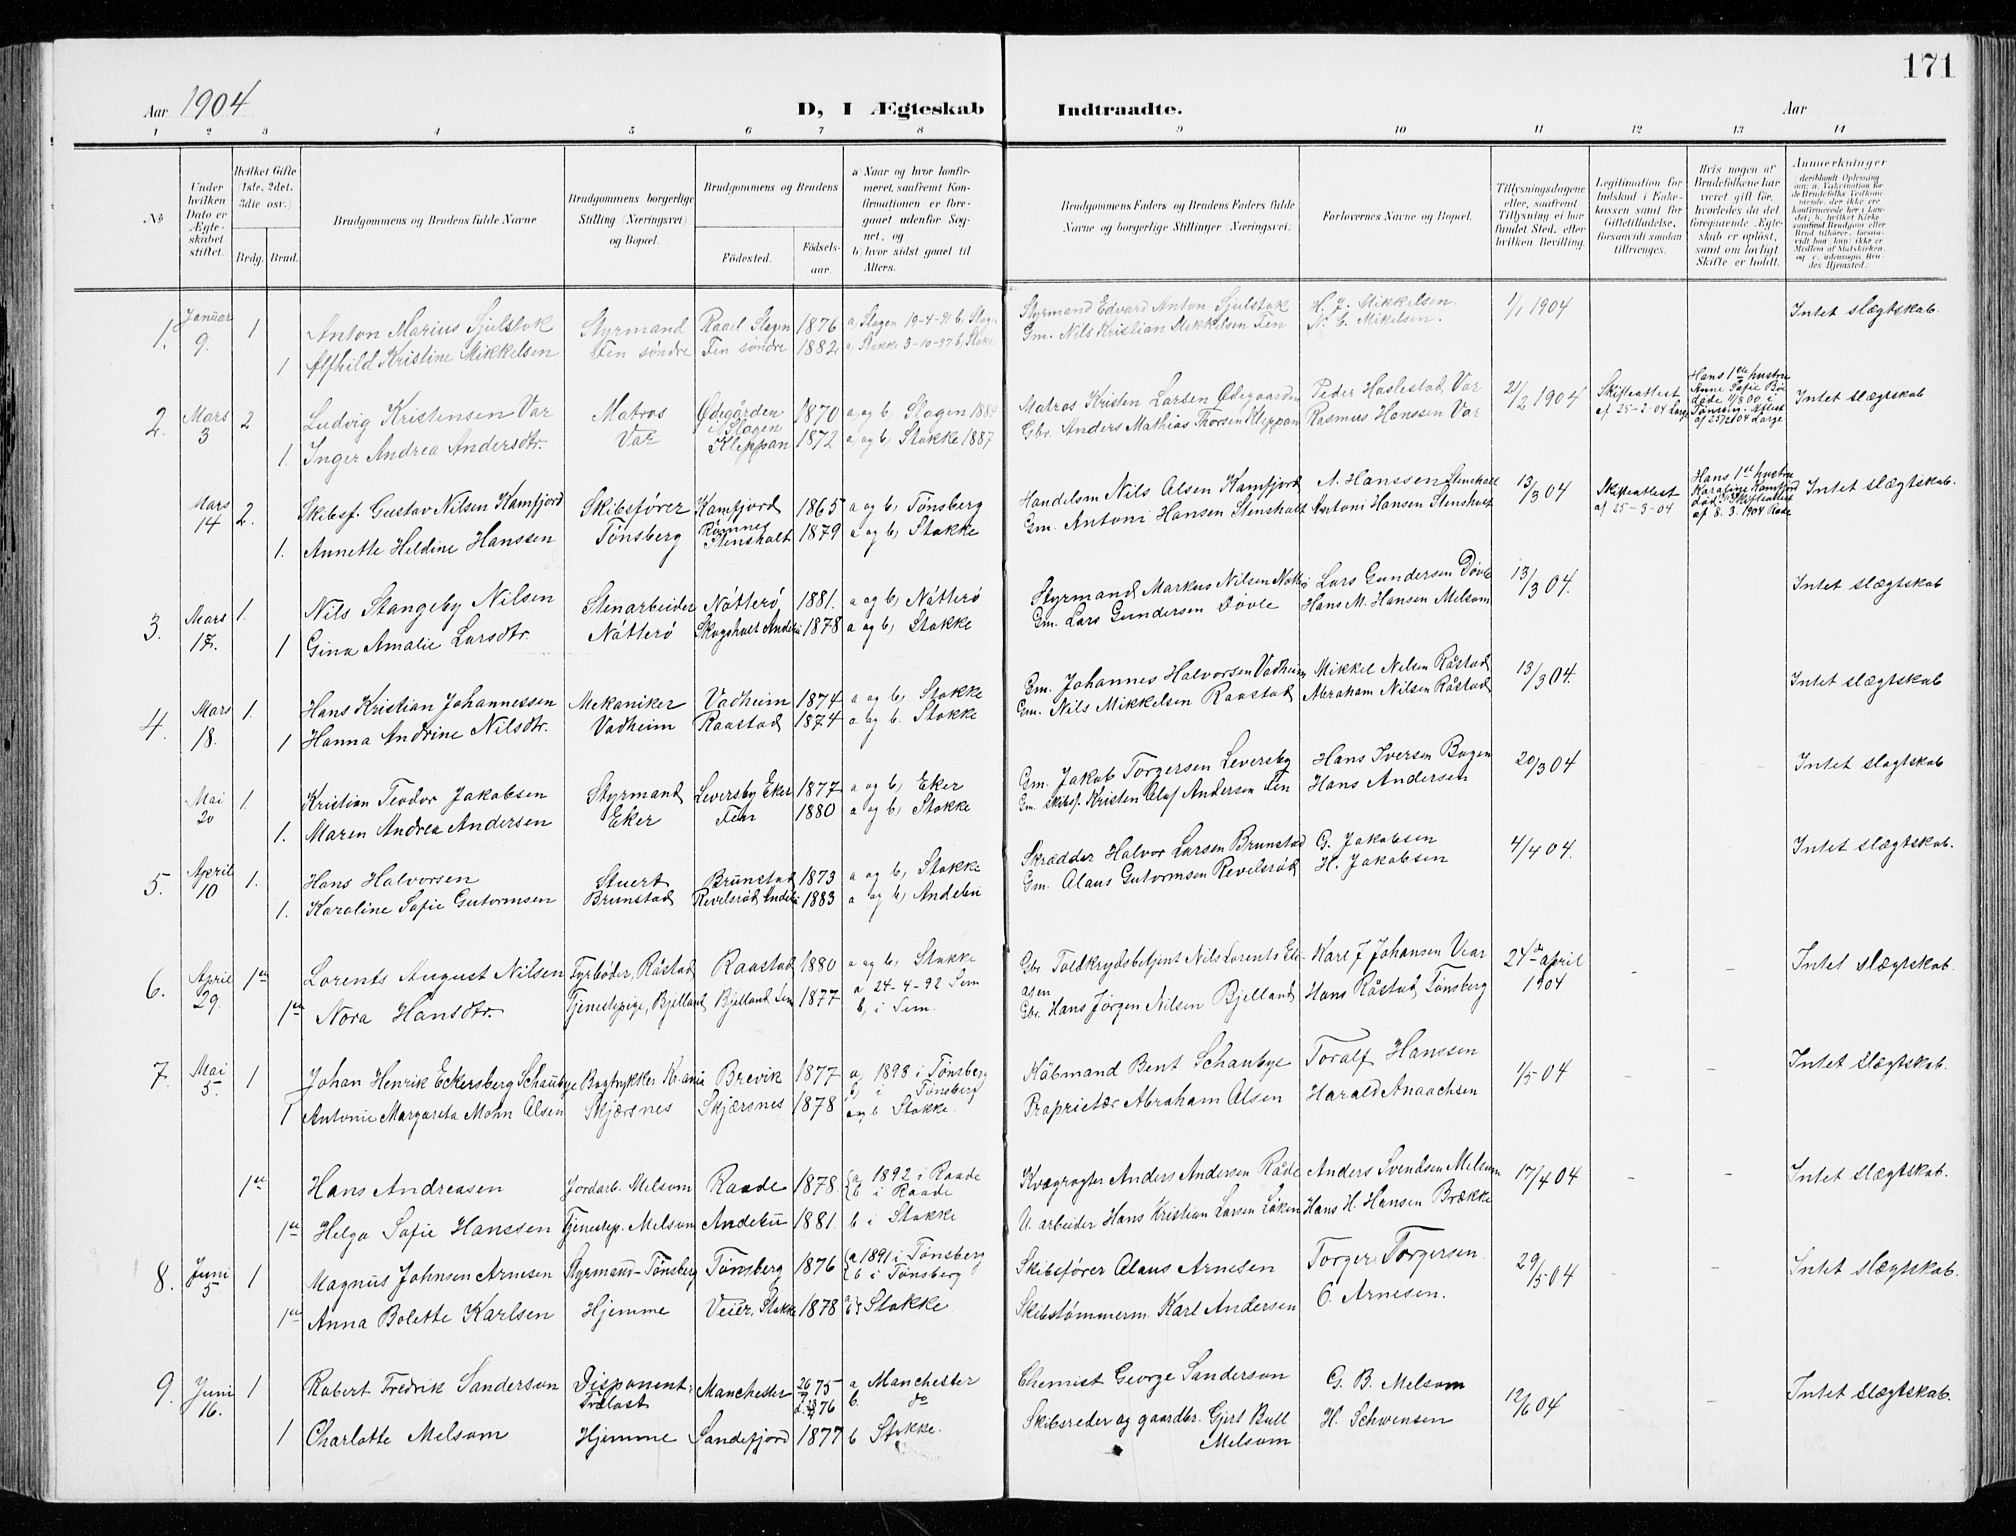 171
Aar 1904
D, I Ægteskab Indtraadte.
Aar
1 2 3 4 5 6 7 8 9 10 11 12 13 14
No
Under hvilken Dato er Ægteskabet stiftet.
Hvilket Gifte (1ste, 2det, 3die osv.)
Brdg. Brud.
Brudgommens og Brudens fulde Navne
Brudgommens borgerlige Stilling (Næringsvei) og Bopæl.
Brudgommens og Brudens
Fødested.
Fødselsaar.
a) Naar og hvor konfirmeret, saafremt Konfirmationen er foregaaet udenfor Sognet, og
b) hvor sidst gaaet til Alters.
Brudgommens Faders og Brudens Faders fulde Navne og borgerlige Stillinger (Næringsvei)
Forlovernes Navne og Bopæl.
Tillysningsdagene eller, saafremt Tillysning ei har fundet Sted, efter hvilken Bevilling.
Legitimation for Indskud i Enkekassen samt for Giftetilladelse, forsaavidt saadan tiltrænges.
Hvis nogen af Brudefolkene har været gift før, hvorledes da det foregaaende Ægteskab er opløst, samt om lovligt Skifte er holdt.
Anmerkninger
1. Januar 9. 1 Anton Marius Sjulstok Styrmand Raael Slagen 1876 a, Slagen 19-4-91 b, Slagen Styrmand Edvard Anton Sjulstok H. J. Mikkelsen. 1/1 1904 Intet slægtskab.
1 Alfhild Kristine Mikkelsen Fen søndre Fen søndre 1882 a, Stokke 3-10-97 b, Stokke Gm. Nils Kristian Mikkelsen Fen N. C. Mikelsen.
2. Mars 3 2 Ludvig Kristensen Var Matros Ødegården i Slagen 1870 a, og b, Slagen 1884 Matros Kristen Larsen Ødegaarden Peder Haslestad Var 21/2 1904 Skifteattest af 25-2-04 Hans 1ste hustru Anne Sofie død 11/8 00 i Tønsberg. Intet slægtskab
1. Inger Andrea Andersdtr. Var Kleppan 1872 a, og b, Stokke 1887 Gbr. Anders Mathias Thorsen Kleppan Rasmus Hanssen Var
Mars 14 2. Skibsf. Gustav Nilsen Kamfjord Skibsfører Kamfjord 1865 a og b, Tønsberg Handelsm Nils Olsen Kamfjord A. Hanssen Stenshalt 13/3 04 Skifteattest af 25-3-04 Hans 1ste hustru Karoline Kamfjord død. Skifteattest af 8. 3. 1904 Intet slægtskab.
1. Annette Heldine Hanssen Tønsberg Stenshalt 1879 a og b, Stokke Gm. Antoni Hansen Stenshalt Antoni Hansen Stenshalt
3. Mars 17. 1. Nils Stangeby Nilsen Stenarbeider Nøtterø 1881. a og b, Nøtterø Styrmand Markus Nilsen Nøtterø Lars Gundersen Døvle 13/3 04. Intet slægtskab
1 Gina Amalie Larsdtr. Nøtterø Skogshalt Andebu 1878 a og b, Stokke Gm. Lars Gundersen Døvle Hans M. Hansen Melsom
4. Mars 18. 1. Hans Kristian Johannessen Mekaniker Vadheim 1874 a og b, Stokke Gm. Johannes Halvorsen Vadheim Mikkel Nilsen Råstad 13/3 04. Intet slægtskab
1 Hanna Andrine Nilsdtr. Vadheim Raastad 1874 a og b. Stokke Gm. Nils Mikkelsen Raastad Abraham Nilsen Råstad
Mai 20 1 Kristian Teodor Jakobsen Styrmand Leversby Eker 1877 a og b, Eker Gm. Jakob Torgersen Leversby Hans Iversen Bogen 20/3 04 Intet slægtskab
1. Maren Andrea Andersen Eker Fen 1880 a og b, Stokke Gm. skibsf. Kristen Olaf Andersen Fen Hans Andersen
5. April 10 1. Hans Halvorsen Stuert Brunstad 1873 a og b, Stokke Skrædder Halvor Larsen Brunstad G. Jakobsen 4/4 04. Intet slægtskab.
1. Karoline Sofie Gutormsen Brunstad Revelsrød Andebu 1883 a og b, Andebu Gm. Olaus Gutormsen Revelsrød H. Jakobsen
6. April 29. 1ste Lorents August Nilsen Fyrbøder, Råstad Raastad 1880 a og b, Stokke Gbr. Toldkrydsbetjent Nils Lorents Karl J Johansen Vear 24de april 1904 Intet slægtskab.
1ste Nora Hansdtr. Tjenestepige, Bjelland Bjelland Sem 1877 a 24-4-92 Sem b, i Sem. Gbr. Hans Jørgen Nilsen Bjelland Hans Råstad Tønsberg
7. Mai 5. 1 Johan Henrik Eckersberg Schaubye Bogtrykker Kr.ania Brevik 1877 a, 1893 i Tønsberg b, i Tønsberg Købmand Bent Schaubye Toralf Hanssen 1/5 04 Intet slægtskab.
1 Antonie Margareta Mohn Olsen Skjærsnes Skjærsnes 1878 a og b Stokke. Proprietær Abraham Olsen Harald Anaachsen
1ste Hans Andreasen Jordarb. Melsom Raade 1878 a 1892 i Raade b i Raade Kvægrøgter Anders Andersen Råde Anders Svendsen Melsom 17/4 04 Intet slægtskab.
1ste Helga Sofie Hanssen Tjenestep. Melsom Andebu 1881. b i Stokke U. arbeider Hans Kristian Larsen Løken Hans H. Hansen Brække
8. Juni 5 1 Magnus Johnsen Arnesen Styrmand Tønsberg Tønsberg 1876 a 1891 i Tønsberg b i Tønsberg Skibsfører Olaus Arnesen Torger Torgersen. 29/5 04 Intet slægtskab.
1ste Anna Bolette Karlsen Hjemme Veier, Stokke 1878 Stokke Skibstømmerm. Karl Andersen O. Arnesen.
9. Juni 16. 1 Robert Fredrik Sanderson Disponent, Trelast Manchester 75 a Manchester b. do Chemist George Sanderson G. B. Melsom 12/6 04 Intet slægtskab.
1 Charlotte Melsom Hjemme Sandefjord 1877 b Stokke. Skibsreder og gaardbr. Gjert Bull Melsom H. Schwensen